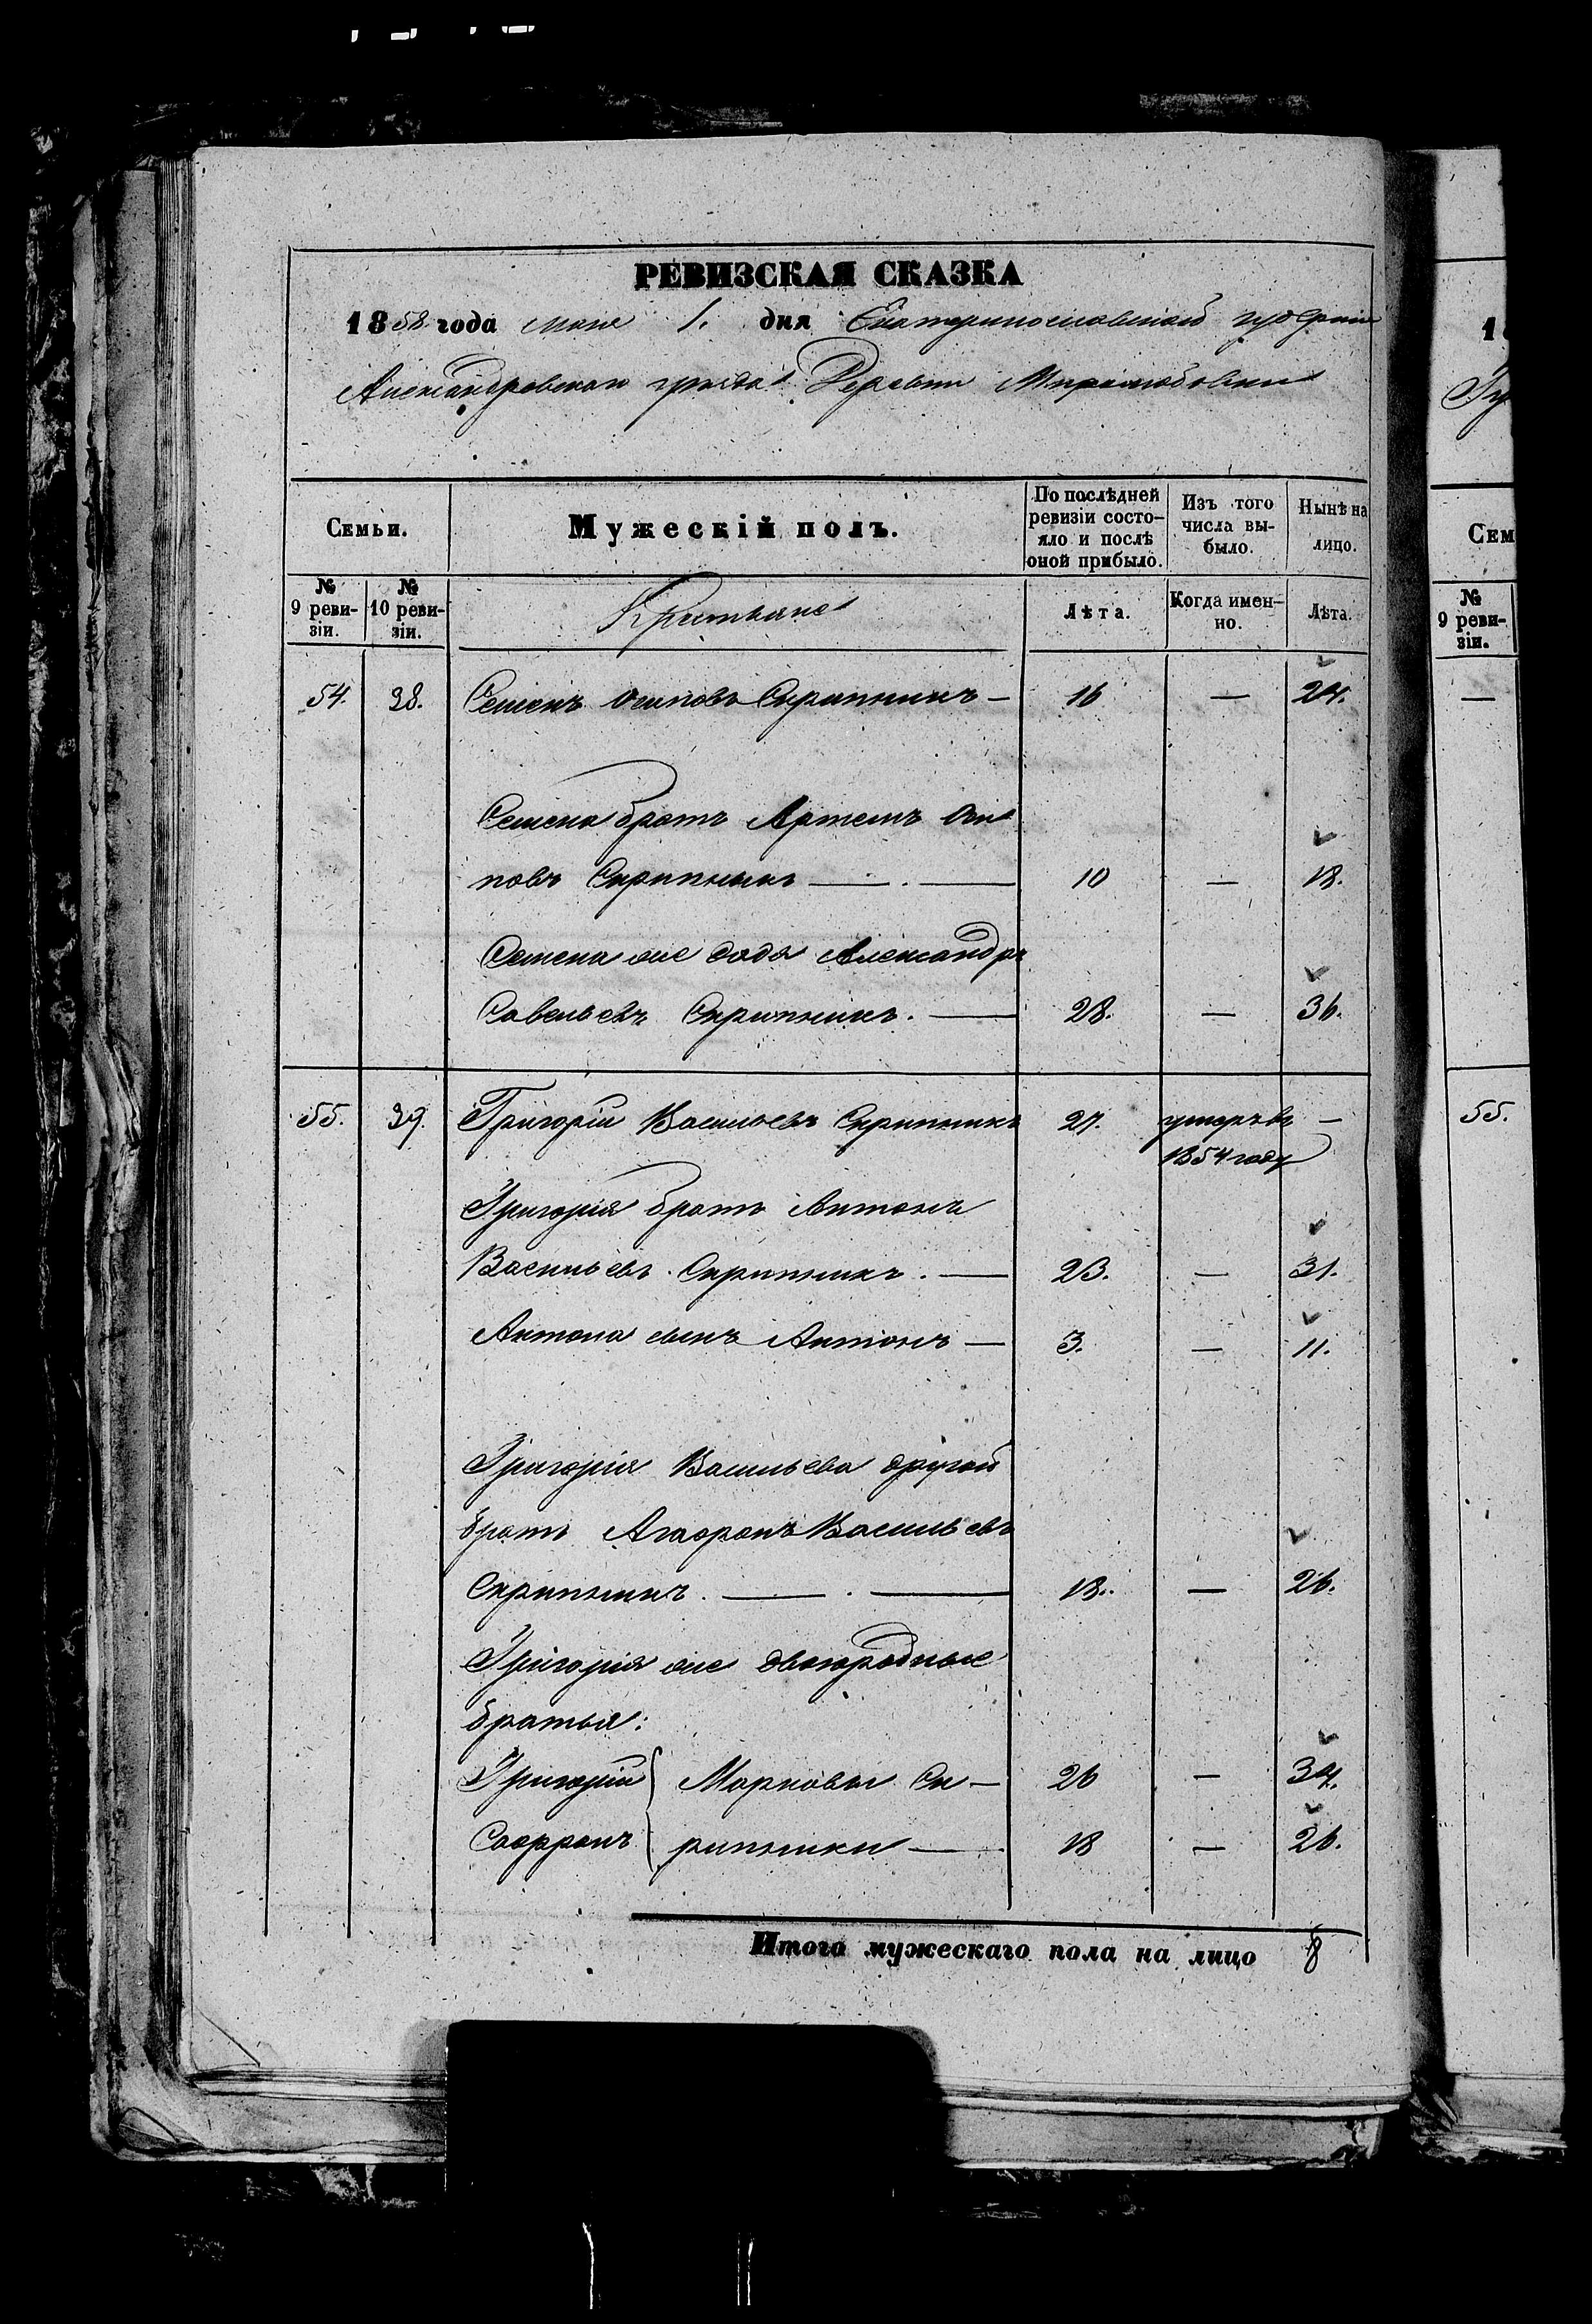 РЕВИЗСКАЯ СКАЗКА
1858 года мая 1. дня Екатеринославской губернии
Александровскаго уезда Деревни Миролюбовки
Семьи.
Мужескій полъ.
По послѣдней
ревизіи состо-
яло и послѣ
оной прибыло.
Изъ того
числа вы-
было.
Нынѣ на
лицо.
№
9 реви-
зіи.
№
10 реви-
зіи.
Крестьяне
Лѣта.
Когда имен-
но.
Лѣта.
54. 38. Семенъ Осиповъ Скрипникъ — 16 — 24.
Семена братъ Артемъ Оси
повъ Скрипникъ — . — 10 — 18.
Семена же дядя Александръ
Савельевъ Скрипникъ. — 28. — 36.
55. 39. Григорій Васильевъ Скрипникъ 27. умеръ въ —
1854 году
Григорія братъ Антонъ
Васильевъ Скрипникъ. — 23. — 31.
Антона сынъ Антонъ — 3. — 11.
Григорія Васильева другой
братъ Агафонъ Васильевъ
Скрипникъ. — . — 18. — 26.
Григорія же двоюродные
братья:
Григорій } Марковы Ск- 26 — 34.
Софронъ } рипники — 18 — 26.
Итого мужескаго пола на лицо 8
1
Гу
Сем
№
9 реви-
зіи.
—
55.